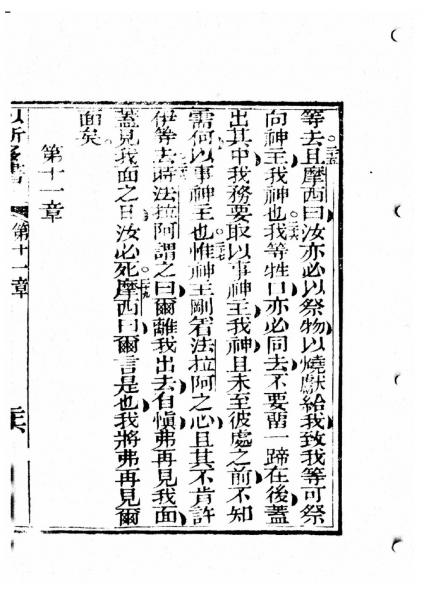 等去且摩西曰汝亦必以祭物以燒獻給我致我等可祭
向神主我神也我等牲口亦必同去不要畱一蹄在後蓋
出其中我務要取以事神主我神且未至彼處之前不知
需何以事神主也惟神主剛着法拉阿之心且其不肯許
伊等去時法拉阿謂之曰爾離我出去自慎弗再見我面
蓋見我面之日汝必死摩西曰爾言是也我將弗再見爾
面矣
第十一章
第十一章